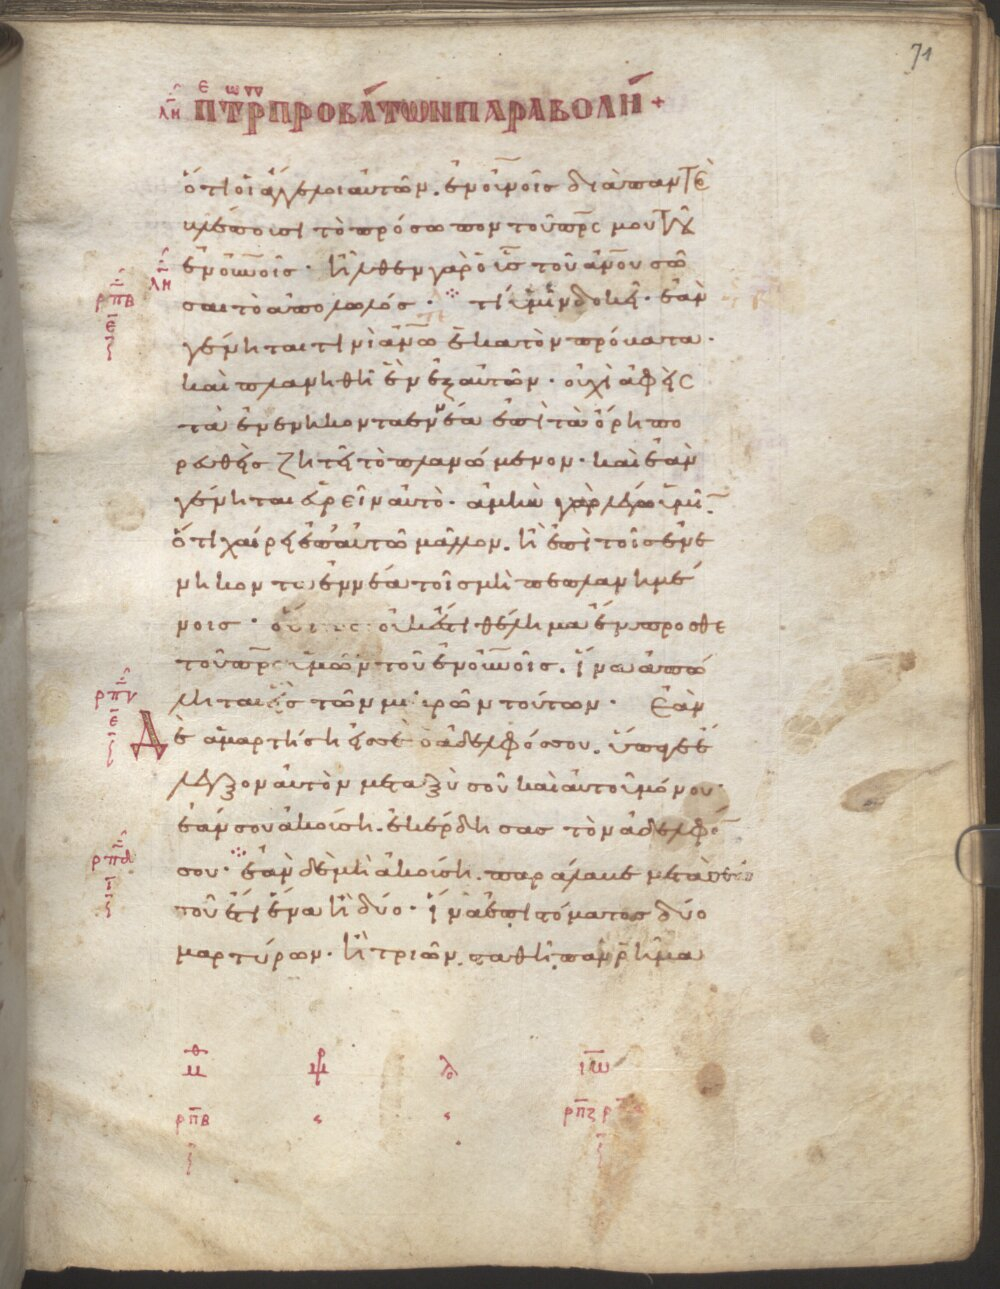 71
λη περι των ρ προβάτων παραβολή +
ὅτι οἱ ἄγγελοι αὐτῶν. ἐν οὐνοῖς διὰ παντὸ
βλέπουσι τὸ πρόσωπον τοῦ πρς μου τοῦ
ἐν οὐνοῖς· ἦλθεν γὰρ ὁ υς τοῦ ανου σῶ
σαι τὸ ἀπολωλός· τί ὑμῖν δοκεῖ· ἐὰν
γένηται τινὶ ανω ἑκατὸν πρόβατα·
καὶ πλανηθῆ ἓν ἐξ αὐτῶν· οὐχὶ ἀφεὶς
τὰ ἐνενηκονταεννέα ἐπὶ τὰ ὄρη πο
ρευθεὶς ζητεῖ τὸ πλανώμενον· καὶ ἐὰν
γένηται εὑρεῖν αὐτὸ· ἀμὴν γὰρ λέγω ὑμῖ
ὅτι χαίρει ἐπ αὐτῶ μᾶλλον. ἢ ἐπὶ τοῖς ἐνε
νηκονταεννέα τοῖς μὴ πεπλανημέ
νοις· οὕτως οὐκ ἔστι θέλημα ἔμπροσθε
τοῦ πρς ὑμῶν τοῦ ἐν οὐνοῖς. ἵνα ἀπό
ληται εἷς τῶν μικρῶν τούτων· Ἐὰν
Δὲ ἁμαρτήση εἰς σὲ ὁ ἀδελφός σου. ὕπαγε ἔ
λεγξον αὐτὸν μεταξὺ σοῦ καὶ αὐτοῦ μόνου·
ἐάν σου ἀκούση. ἐκέρδησας τὸν ἀδελφό
σου· ἐὰν δὲ μὴ ἀκούση. παράλαβε μετὰ σεαυ
τοῦ ἔτι ἕνα ἢ δύο· ἵνα ἐπὶ στόματος δύο
μαρτύρων. ἢ τριῶν. σταθῆ πᾶν ῥῆμα
ρπβ
ε
ρπγ
ε
ρπδ
μθ μρ λο ιω
ρπβ ρπζ